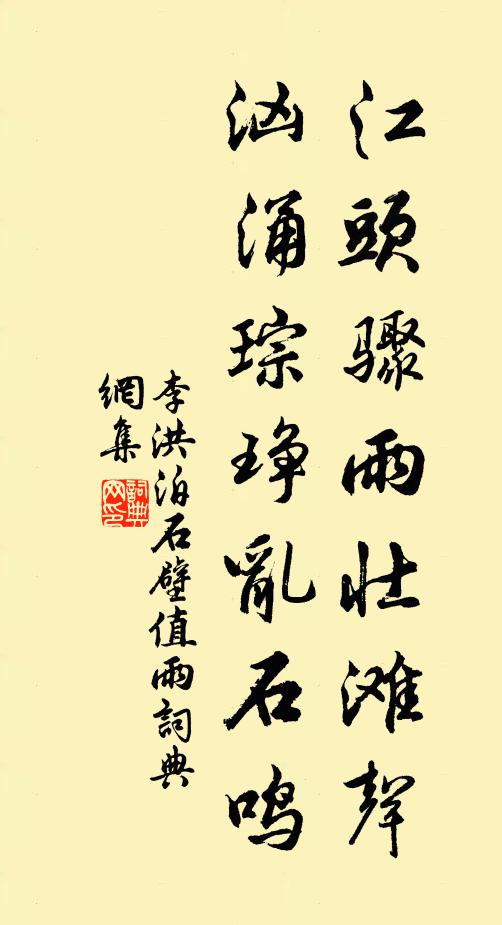 江頭驟雨壯滩聲
汹涌琮琤亂石鳴
李洪泊石壁值雨詞典
網集
詞典網印